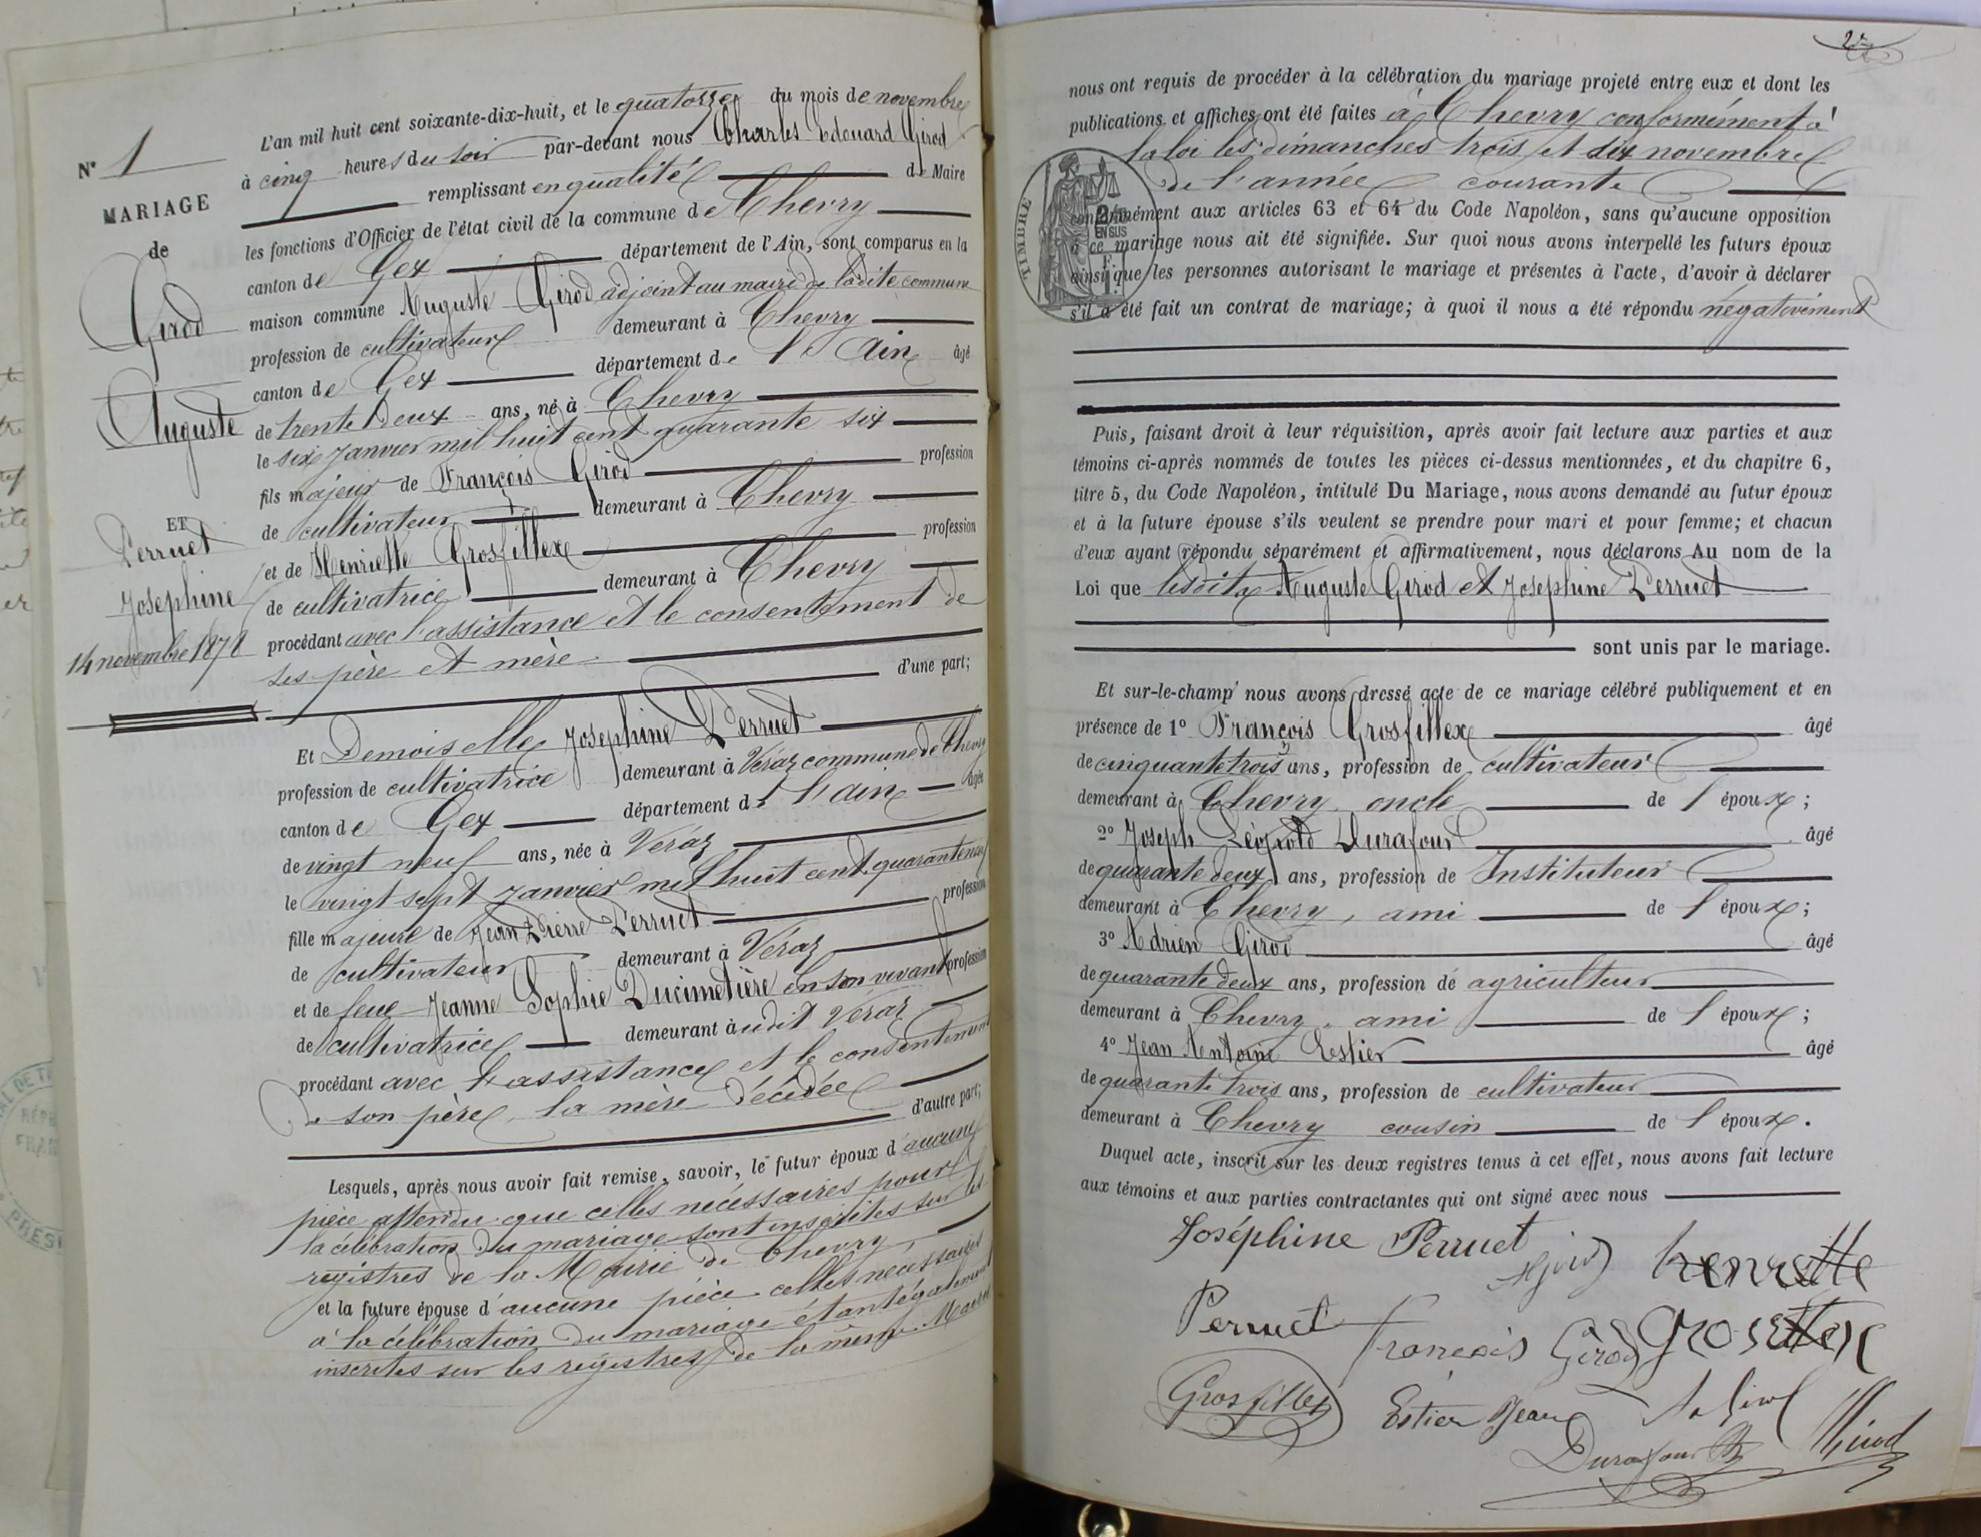 N° 1
MARIAGE
de
Girod
Auguste
ET
Perruet
Josephine
14 novembre 1878
L'an mil huit cent soixante-dix-huit, et le quatorze du mois de novembre
à cinq heures du soir par-devant nous Charles Edouard Girod
remplissant en qualité de Maire
les fonctions d'Officier de l'état civil de la commune de Chevry
canton de Gex département de l'Ain, sont comparus en la
maison commune Auguste Girod adjoint au maire de ladite commune
profession de cultivateur demeurant à Chevry
canton de Gex département de l'Ain âgé
de trente deux ans, né à Chevry
le six janvier mil huit cent quarante six
fils majeur de François Girod profession
de cultivateur demeurant à Chevry
et de Henriette Grosfillex profession
de cultivatrice demeurant à Chevry
procédant avec l'assistance et le consentement de
ses père et mère
d'une part;
Et Demoiselle Josephine Perruet
profession de cultivatrice demeurant à Véraz commune de Chevry
canton de Gex département de l'ain âgée
de vingt neuf ans, née à Véraz
le vingt sept janvier mil huit cent quarante neuf
fille majeure de Jean Pierre Perruet profession
de cultivateur demeurant à Véraz
et de feue Jeanne Sophie Ducimetière en son vivant profession
de cultivatrice demeurant audit Véraz
procédant avec l'assistance et le consentement
de son père, la mère décédée
d'autre part;
Lesquels, après nous avoir fait remise, savoir, le futur époux d'aucune
pièce attendu que celles nécessaires pour
la célébration du mariage sont inscrites sur les
registres de la Mairie de Chevry,
et la future épouse d'aucune pièce celles nécessaires
à la célébration du mariage étant également
inscrites sur les registres de la même Mairie
2
nous ont requis de procéder à la célébration du mariage projeté entre eux et dont les
publications et affiches ont été faites à Chevry conformément à
la loi les dimanches trois et dix novembre
de l'année courante
TIMBRE
EN SUS
conformément aux articles 63 et 64 du Code Napoléon, sans qu'aucune opposition
à ce mariage nous ait été signifiée. Sur quoi nous avons interpellé les futurs époux
ainsi que les personnes autorisant le mariage et présentes à l'acte, d'avoir à déclarer
s'il a été fait un contrat de mariage; à quoi il nous a été répondu négativement
Puis, faisant droit à leur réquisition, après avoir fait lecture aux parties et aux
témoins ci-après nommés de toutes les pièces ci-dessus mentionnées, et du chapitre 6,
titre 5, du Code Napoléon, intitulé Du Mariage, nous avons demandé au futur époux
et à la future épouse s'ils veulent se prendre pour mari et pour femme; et chacun
d'eux ayant répondu séparément et affirmativement, nous déclarons Au nom de la
Loi que lesdits Auguste Girod et Josephine Perruet
sont unis par le mariage.
Et sur-le-champ nous avons dressé acte de ce mariage célébré publiquement et en
présence de 1° François Grosfillex âgé
de cinquante trois ans, profession de cultivateur
demeurant à Chevry, oncle de l'époux;
2° Joseph Léopold Durafour âgé
de quarante deux ans, profession de Instituteur
demeurant à Chevry, ami de l'époux;
3° Adrien Girod âgé
de quarante deux ans, profession de agriculteur
demeurant à Chevry, ami de l'époux;
4° Jean Antoine Estier âgé
de quarante trois ans, profession de cultivateur
demeurant à Chevry cousin de l'époux.
Duquel acte, inscrit sur les deux registres tenus à cet effet, nous avons fait lecture
aux témoins et aux parties contractantes qui ont signé avec nous
Joséphine Perruet AGirod henrette
Perruet François Girod
Grosfillex Estier Jean A. Girod
Durafour Girod